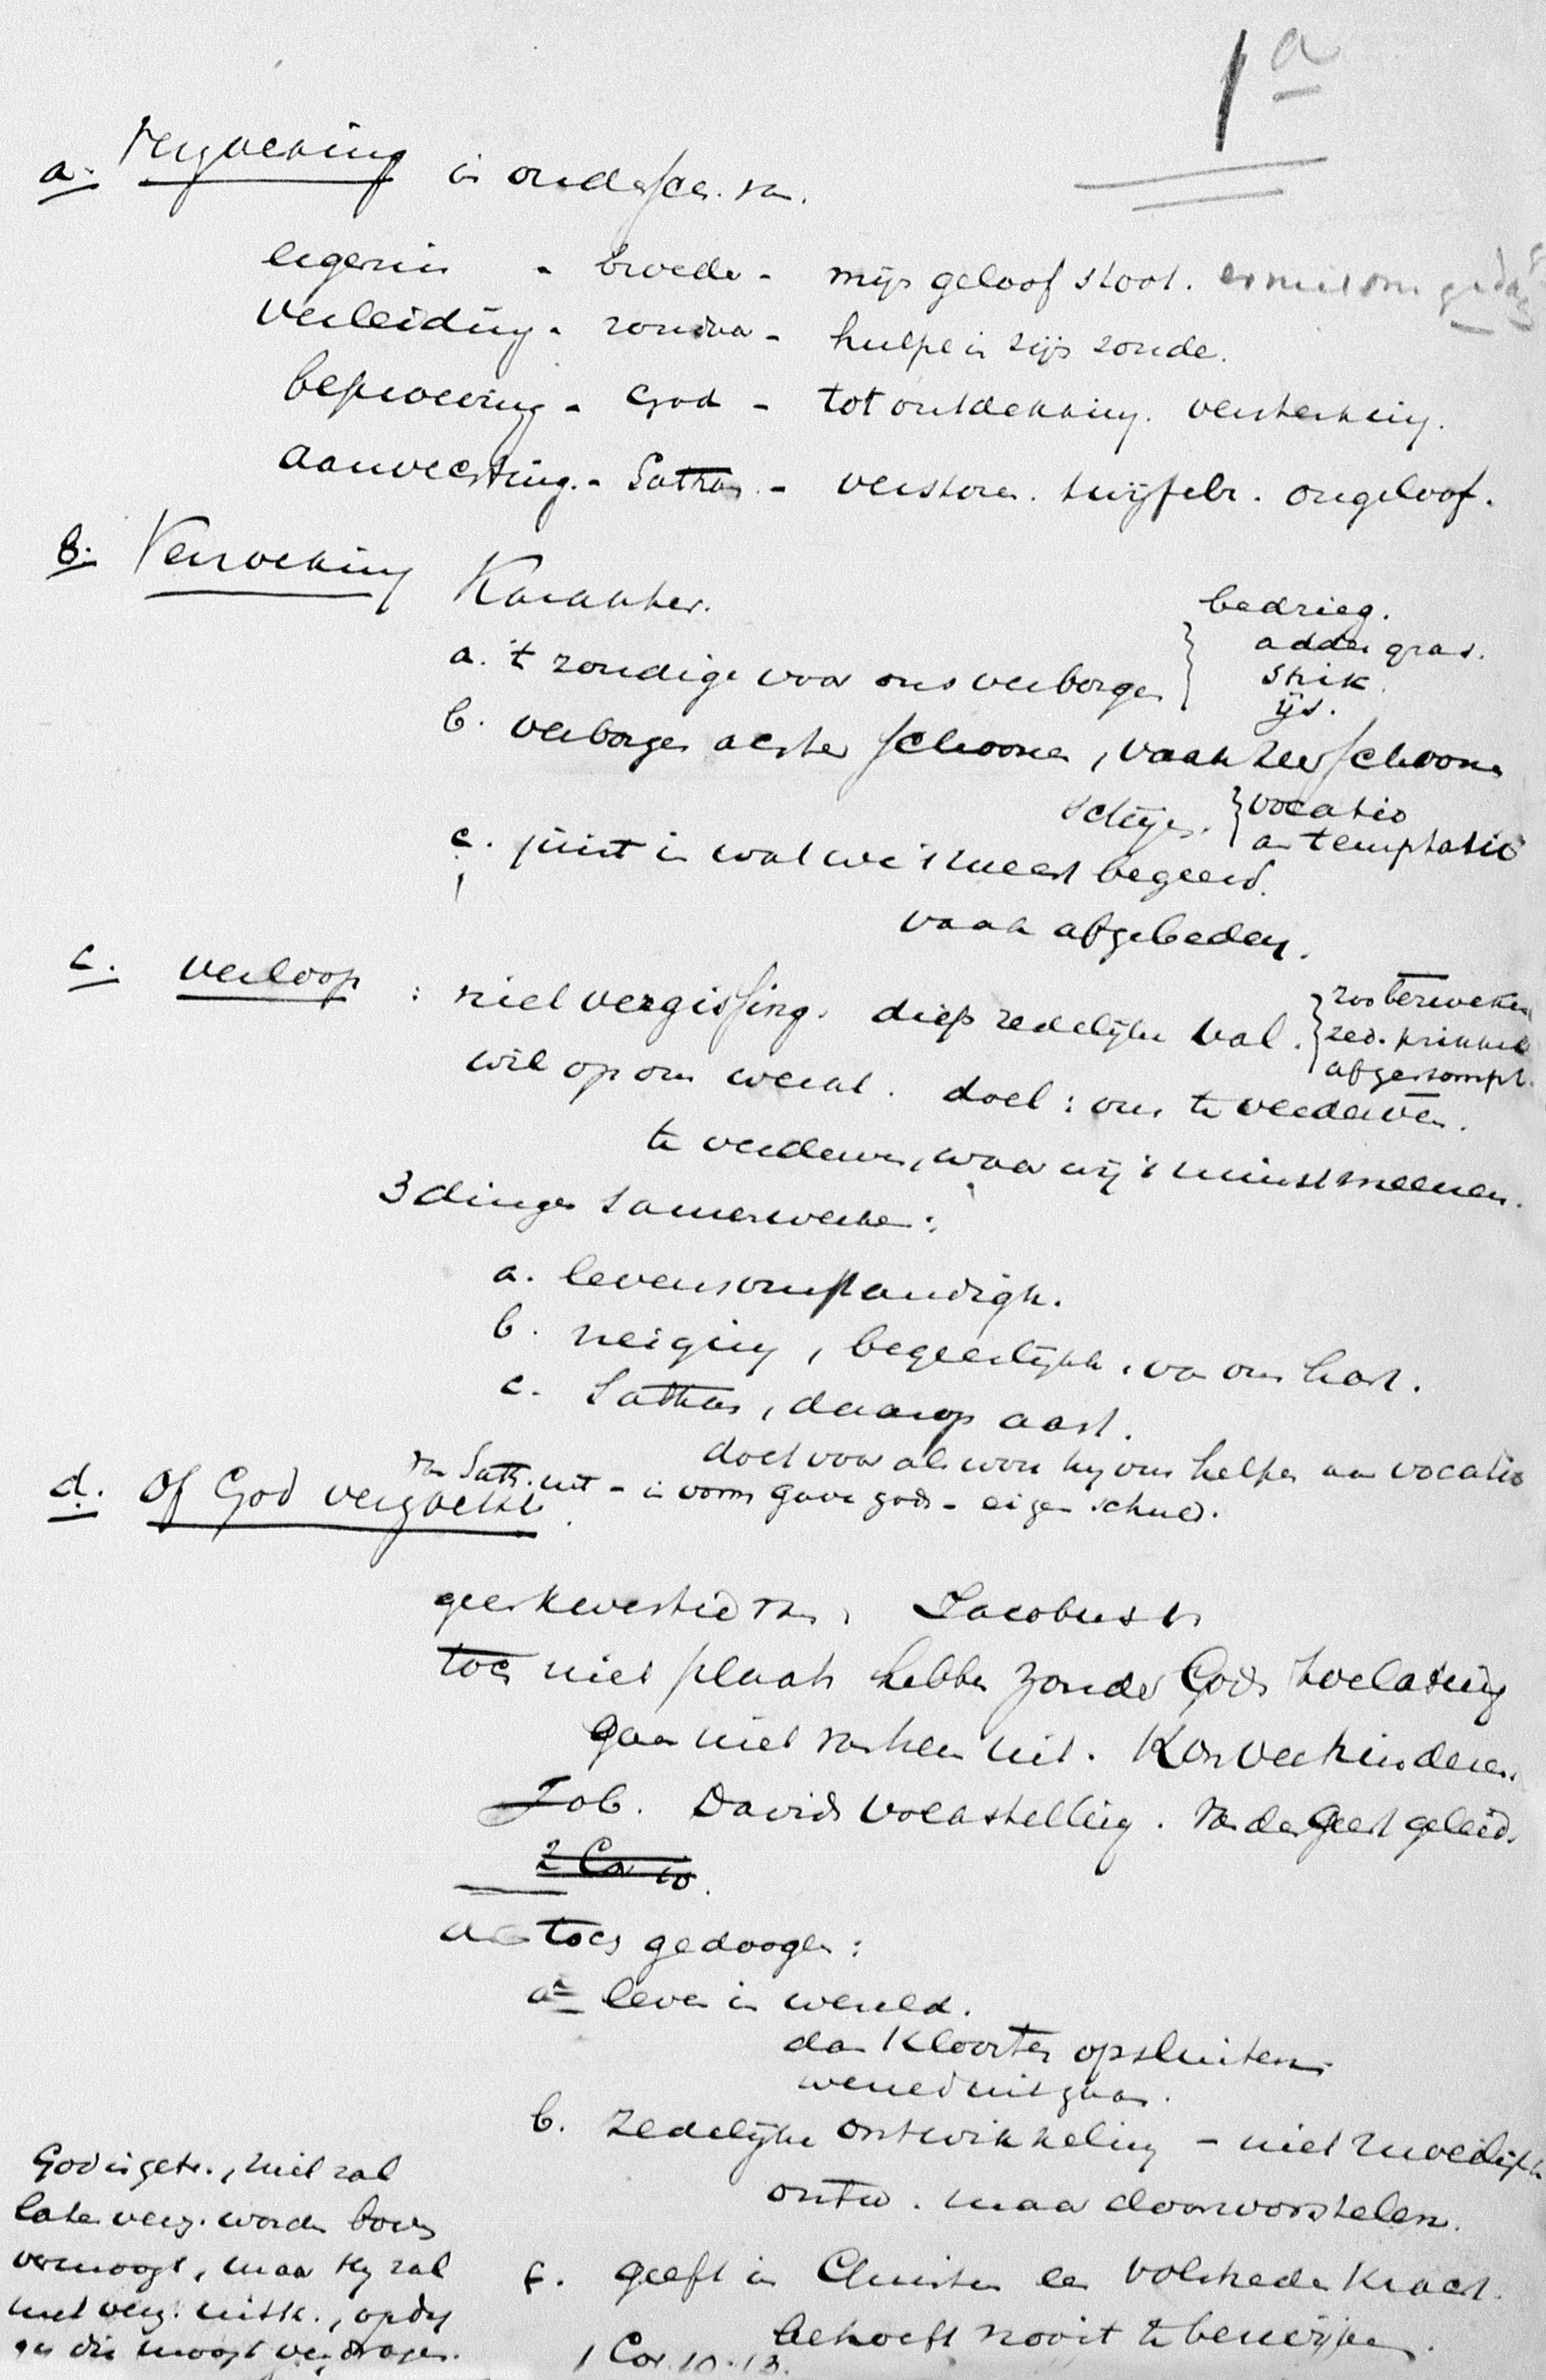 1 a
a. Verzoeking in ondersch. van.
ergernis - broeder - mijn geloof stoot.
Verleiding - zondaar - hulpe in zijn zonde.
beproeving - God - tot ontdekking. versterking.
aanvechting. - Sathan. - verstoren. twijfelr. ongeloof.
b. Verzoeking Karakter.
bedrieg.
adder gras.
strik.
ijs.
a. 't zondige voor ons verborgen
b. verborgen achter schoonen, vaak zeer schoonen
schijn. vocatio
a temptatio
c. juist in wat we 't meest begeerd.
vaak afgebeden.
c. verloop : niet vergissing. diep zedelijke val.
zed. prikkel
afgestompt.
wil op ons werkt. doel: ons te verderven.
te verderven, waar wij 't minst meenen.
3 dingen samenwerken:
a. levensomstandigh.
b. neiging, begeerlijkh. van ons hart.
c. Sathan, daarop aast.
doet voor als wou hij ons helpen aan vocatio
van Sath. uit - in vorm gave gods - eigen schuld.
d. Of God verzoekt.
geen kwestie van, Jacobus
toch niet plaats hebben zonder Gods toelating
gaan niet van hem uit. Kon verhinderen.
Job. David volkstelling. Van den Geest geleid.
2 Cor 10.
toch gedoogen:
a leven in wereld.
dan Klooster opsluiten
wereld uitgaan.
b. zedelijke ontwikkeling - niet
ontw. maar doorworstelen.
c. geeft in Christus een volstrekte Kracht.
behoeft nooit te bezwijken.
1 Cor. 10.13.
God is getr., niet zal
laten verz. worden boven
vermoogt, maar Hij zal
met verz. uitk., opdat
gij die moogt verdragen.